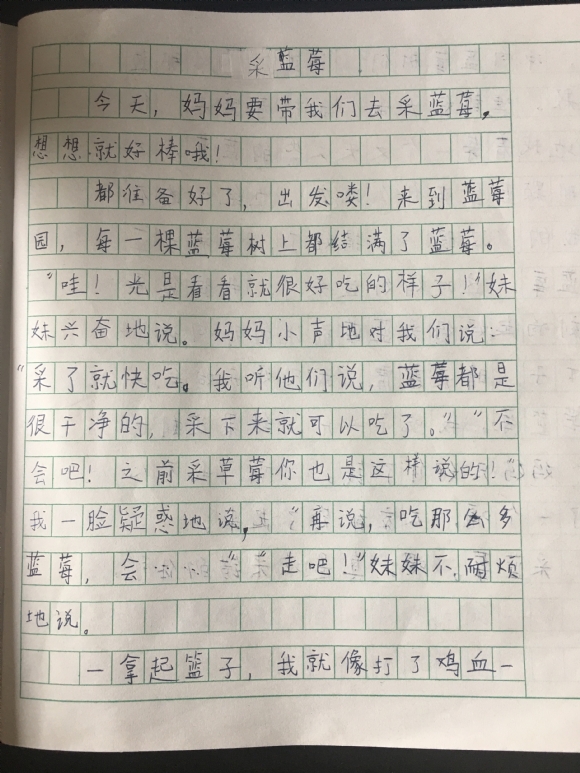 采蓝莓
今天,妈妈要带我们去采蓝莓,
想想就好棒哦!
都准备好了,出发喽!来到蓝莓
园,每一棵蓝莓树上都结满了蓝莓。
“哇!光是看看就很好吃的样子!”妹
妹兴奋地说。妈妈小声地对我们说:
“采了就快吃。我听他们说,蓝莓都是
很干净的,采下来就可以吃了。”“不
会吧!之前采草莓你也是这样说的!”
我一脸疑惑地说,“再说,吃那么多
蓝莓,会……”“走吧!”妹妹不耐烦
地说。
一拿起篮子,我就像打了鸡血一